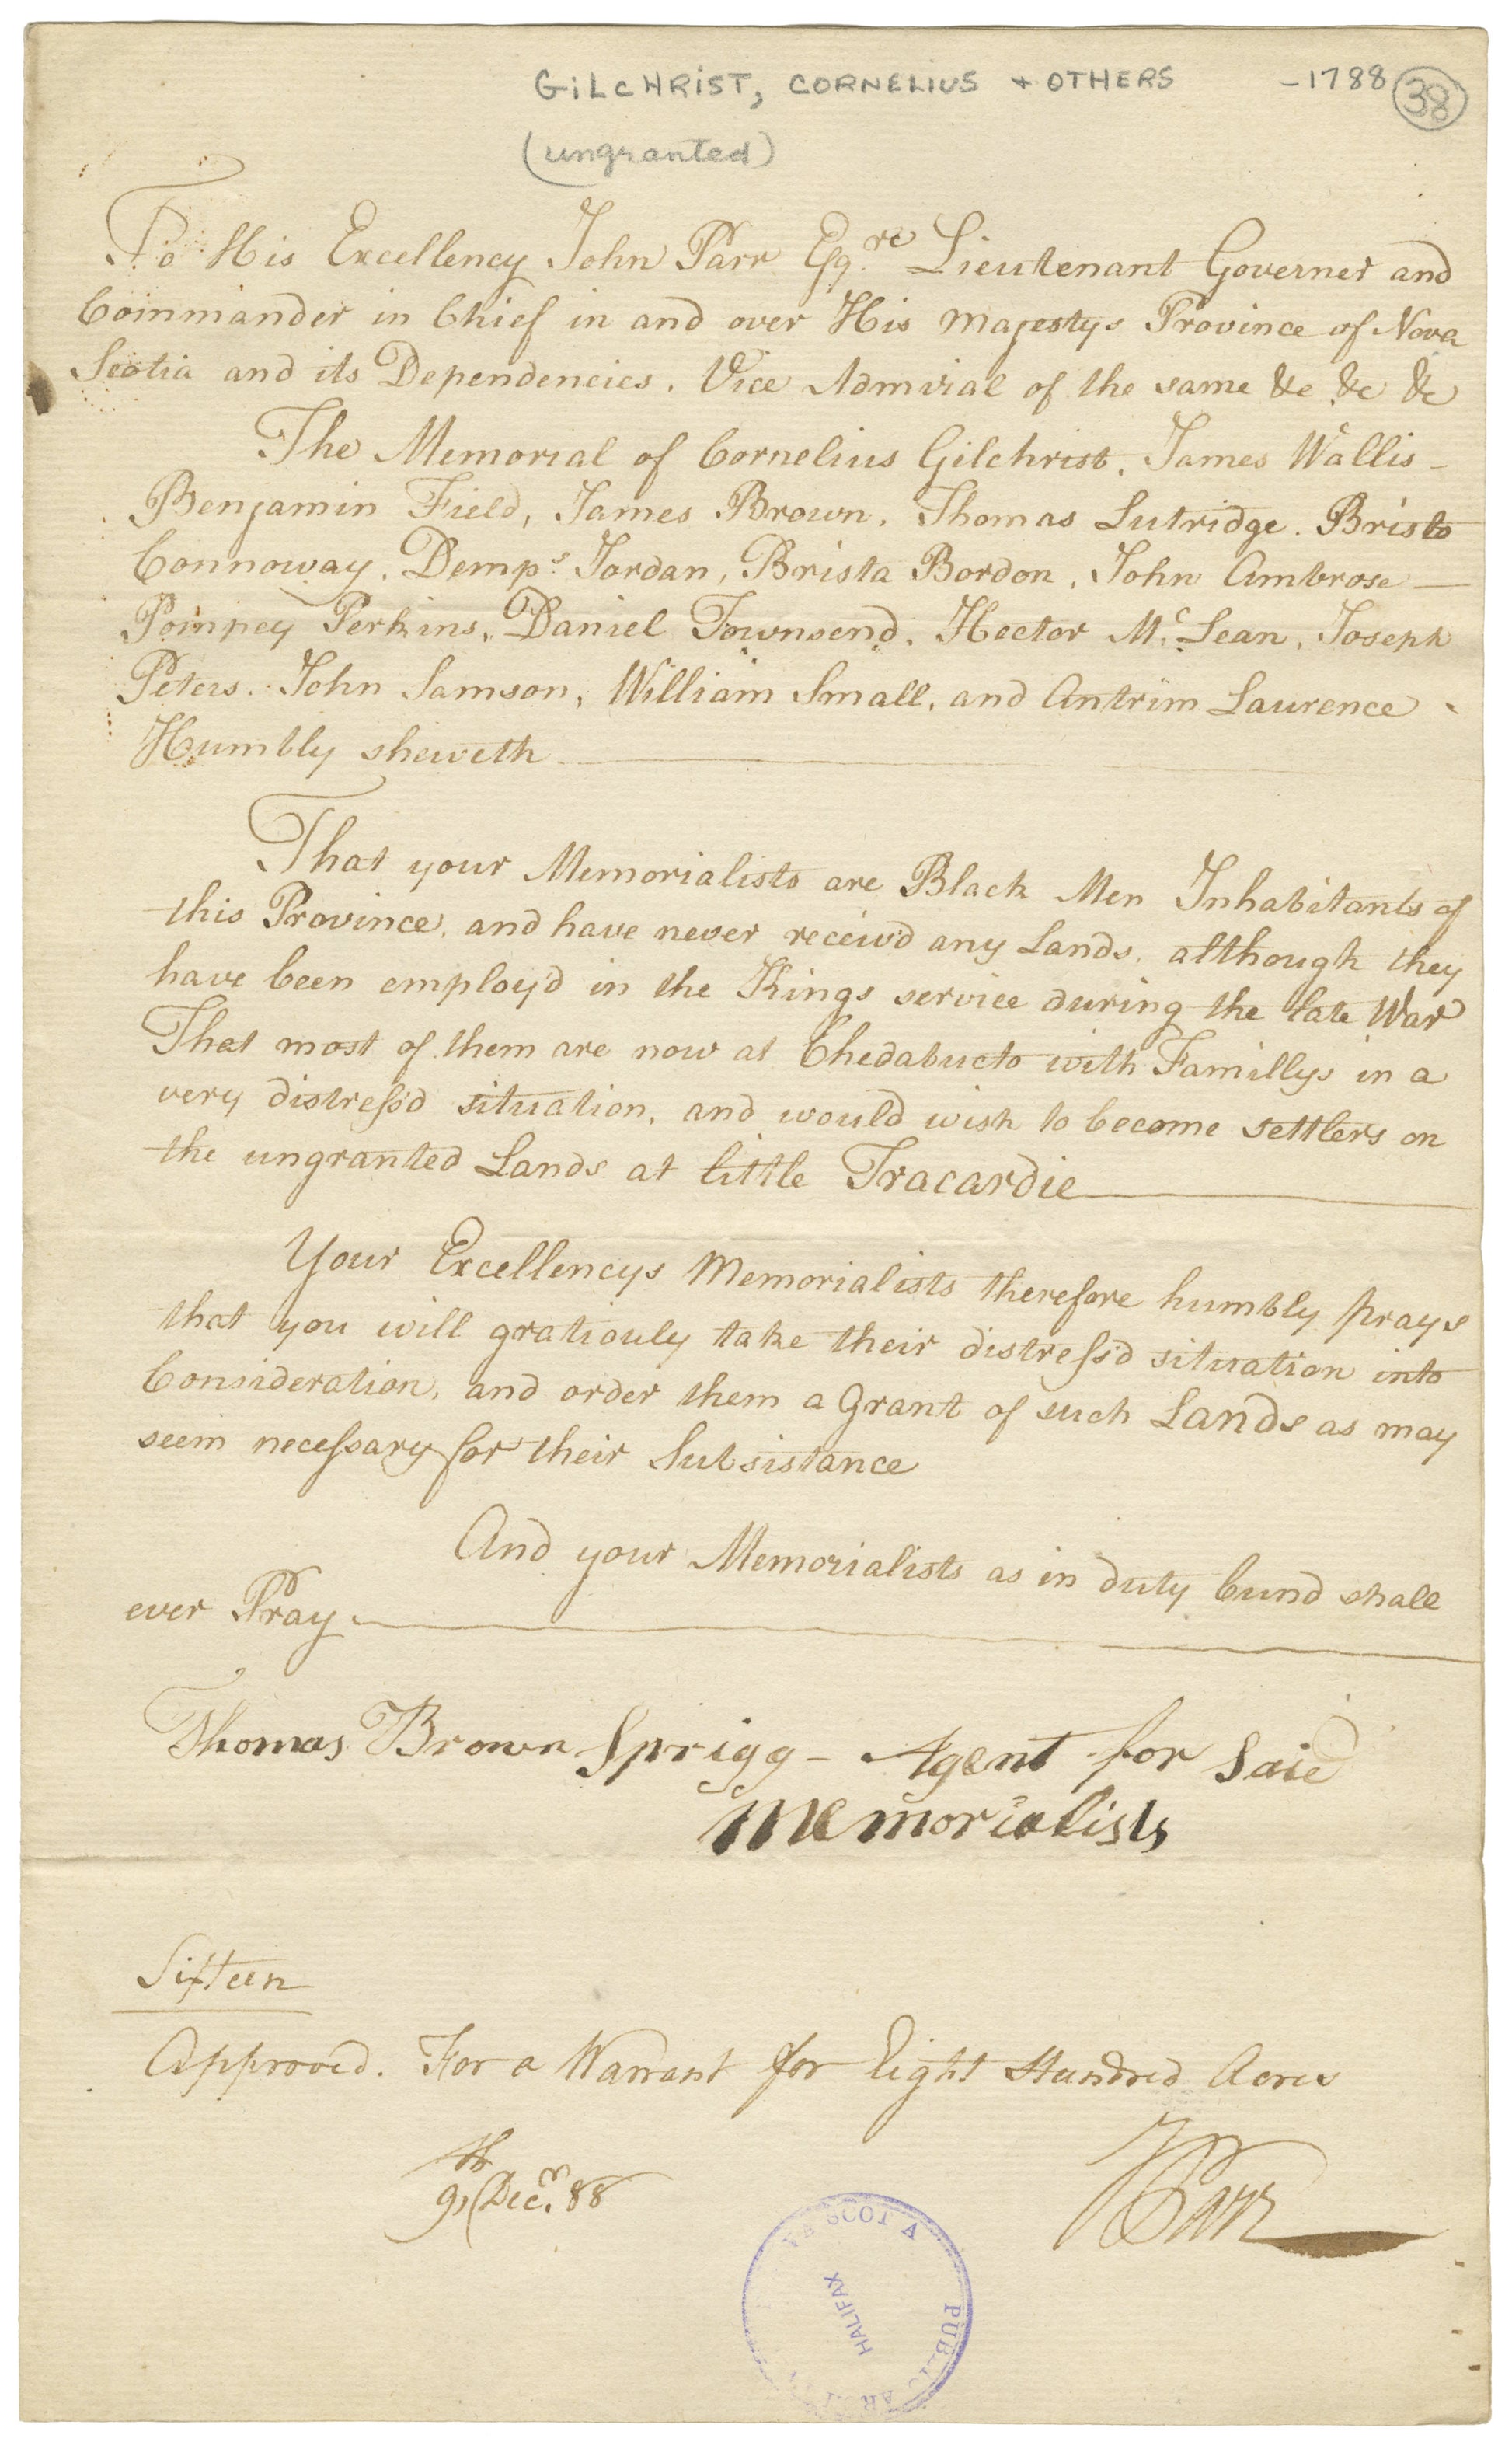 GILCHRIST, CORNELIUS + OTHERS -1788 38
(ungranted)
To His Excellency John Parr Esqre. Lieutenant Governer and
Commander in Chief in and over His Majestys Province of Nova
Scotia and its Dependencies. Vice Admiral of the same &c &c &c
The Memorial of Cornelius Gilchrist, James Wallis -
Benjamin Field, James Brown, Thomas Lutridge. Bristo
Connoway, Demps. Jordan, Brista Bordon, John Ambrose —
Pompey Perkins, Daniel Townsend, Hector Mc. Lean, Joseph
Peters. John Samson, William Small, and Antrim Laurence -
Humbly sheweth —
That your Memorialists are Black Men Inhabitants of
this Province, and have never receiv'd any Lands, although they
have been employ'd in the Kings service during the late War
That most of them are now at Chedabucto with Famillys in a
very distress'd situation, and would wish to become settlers on
the ungranted Lands at little Tracardie —
Your Excellencys Memorialists therefore humbly prays
that you will gratiouly take their distress'd situation into
Consideration, and order them a Grant of such Lands as may
seem necessary for their Subsistance
And your Memorialists as in duty bund shall
ever Pray —
Thomas Brown Sprigg - Agent for Said
Memorialists
Sixteen
Approved. For a Warrant for Eight Hundred Acres
9th Decr. 88
J Parr
PUBLIC AR SCOTIA
HALIFAX